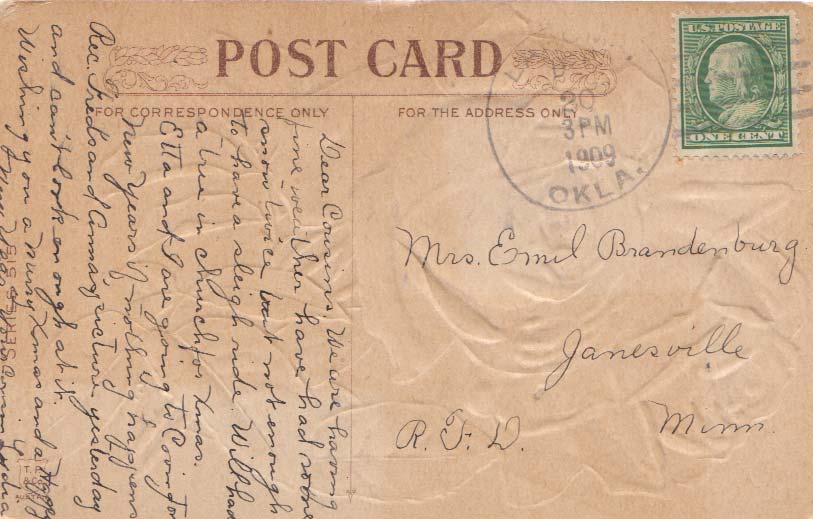 POST CARD
FOR CORRESPONDENCE ONLY
FOR THE ADDRESS ONLY
U.S. POSTAGE
ONE CENT
20
3 PM
1909
OKLA.
Dear Cousins. We are having
fine weather have had some
snow twice but not enough
to have a sleigh ride. Will had
a tree in church for Xmas.
Etta and I are going to Covington
New Years if nothing happens
Rec. Freds and Annas picture yesterday
and can't look enough at it.
Wishing you a merry Xmas and a Happy
New Year
Mrs. Emil Brandenburg
Janesville
R.F.D. Minn.
SERIES